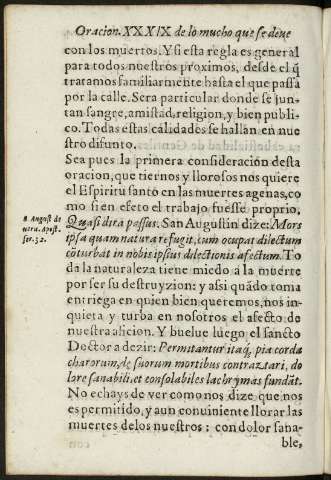 Oracion. XXXIX de lo mucho que se deue
con los muertos. Y si esta regla es general
para todos nuestros proximos, desde el q̃
tratamos familiarmente hasta el que passa
por la calle. Sera particular donde se jun-
tan sangre, amistad, religion, y bien publi-
co. Todas estas calidades se hallan en nue
stro difunto.
Sea pues la primera consideracion desta
oracion, que tiernos y llorosos nos quiere
el Espiritu santo en las muertes agenas, co
mo si en efeto el trabajo fuesse proprio,
Quasi dira passus. San Augustin dize: Mors
B August de
vera. apost.
ser. 32.
ipsa quam natura refugit, cum ocupat dilectum
cõturbat in nobis ipsius dilectionis afectum. To
da la naturaleza tiene miedo à la muerte
por ser su destruyzion: y assi quãdo toma
entriega en quien bien queremos, nos in-
quieta y turba en nosotros el afecto de
nuestra aficion. Y buelue luego el sancto
Doctor a dezir: Permitantur itaq; pia corda
charorum, de suorum mortibus contraztari, do
lore sanabili, et consolabiles lachrymas fundãt.
No echays de ver como nos dize que nos
es permitido, y aun conuiniente llorar las
muertes delos nuestros: con dolor sana-
ble,